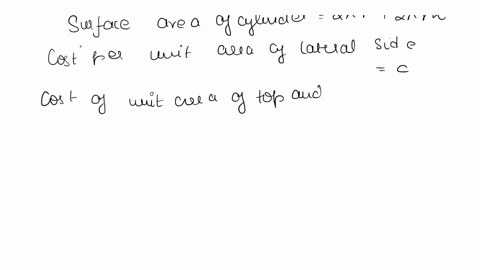 Surface area of cylinder =
Cost per unit area of lateral side
= c
Cost of unit area of top and